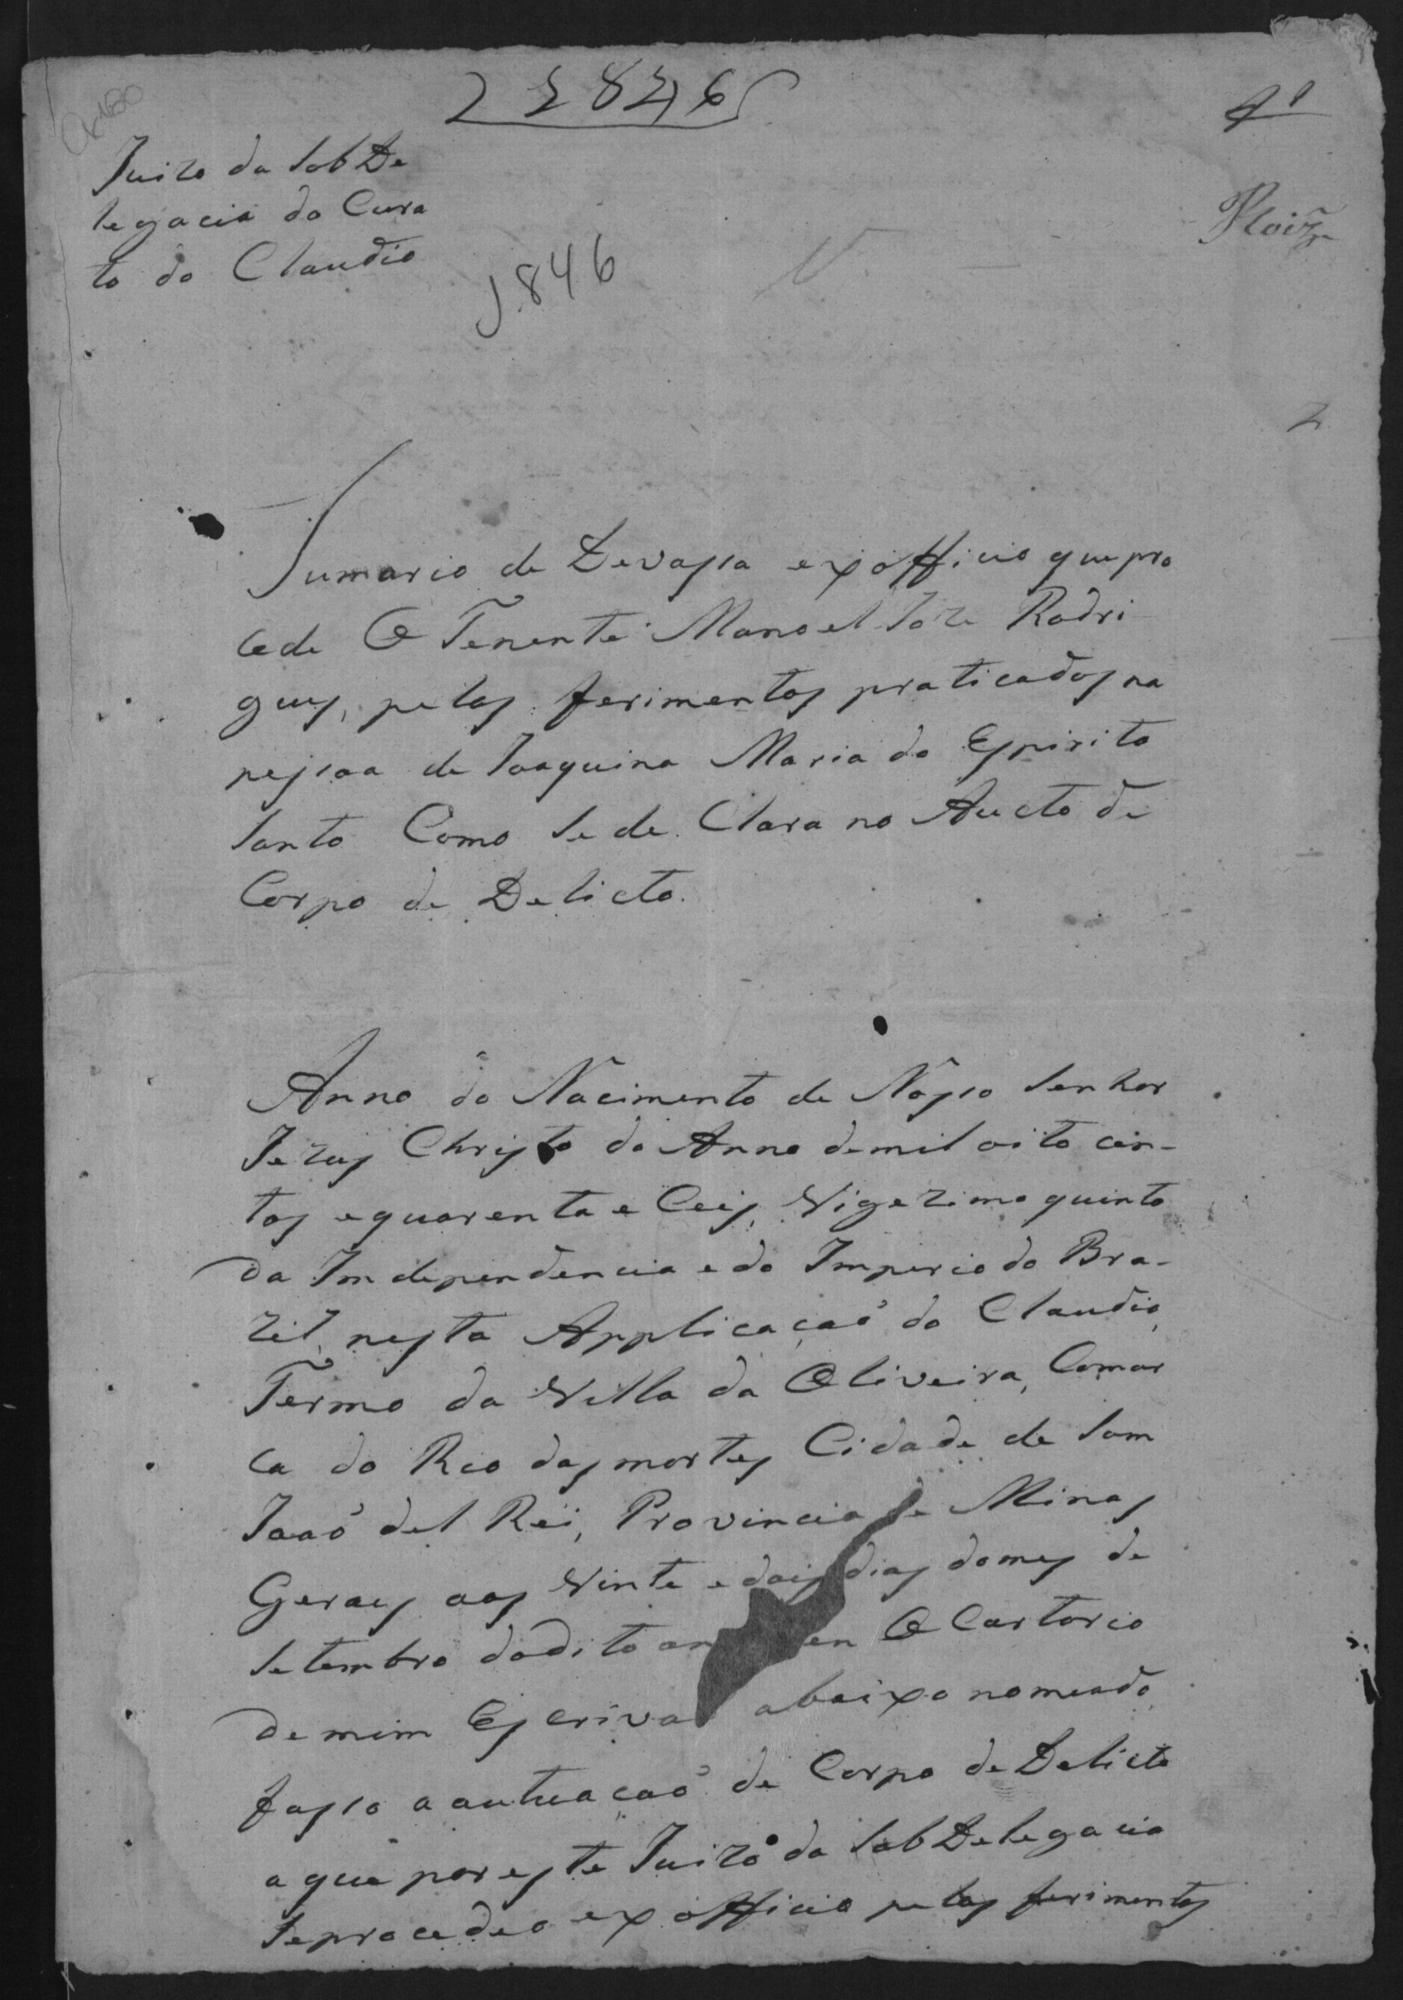 1846
Juizo da SobDe
legacia do Cura
to do Claudio
1846
2
Sumario de Devassa exofficio que pro
cede O Tenente Manoel Joze Rodri
gues, pelos ferimentos praticados na
pessoa de Joaquina Maria do Espirito
Santo Como Se de Clara no Aucto de
Corpo de Delicto.
Anno do Nacimento de Nosso Senhor
Jezus Christo do Anno demil oito cen-
tos equarenta e Ceis, Vigezimo quinto
da Independencia e do Imperio do Bra-
zil, nesta Applicacaõ do Claudio,
Termo da Villa da Oliveira, Comar
ca do Rio dasmortes Cidade de Sam
Joaõ del Rei, Provincia de Minas
Geraes aos Vinte e dois dias domes de
Setembro dodito an en O Cartorio
de mim Escrivaõ abaixo nomeado
fasso a autuacaõ de Corpo de Delicto
aque por este Juizo da SobDelegacia
Seprocedeo exofficio pelos ferimentos